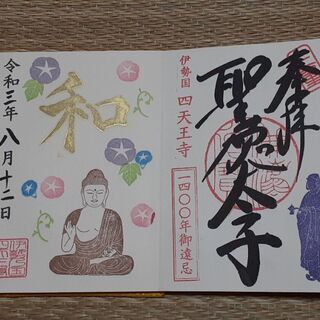 奉拝
聖徳太子
伊勢国 四天王寺
一四〇〇年御遠忌
和
令和三年 八月十二日